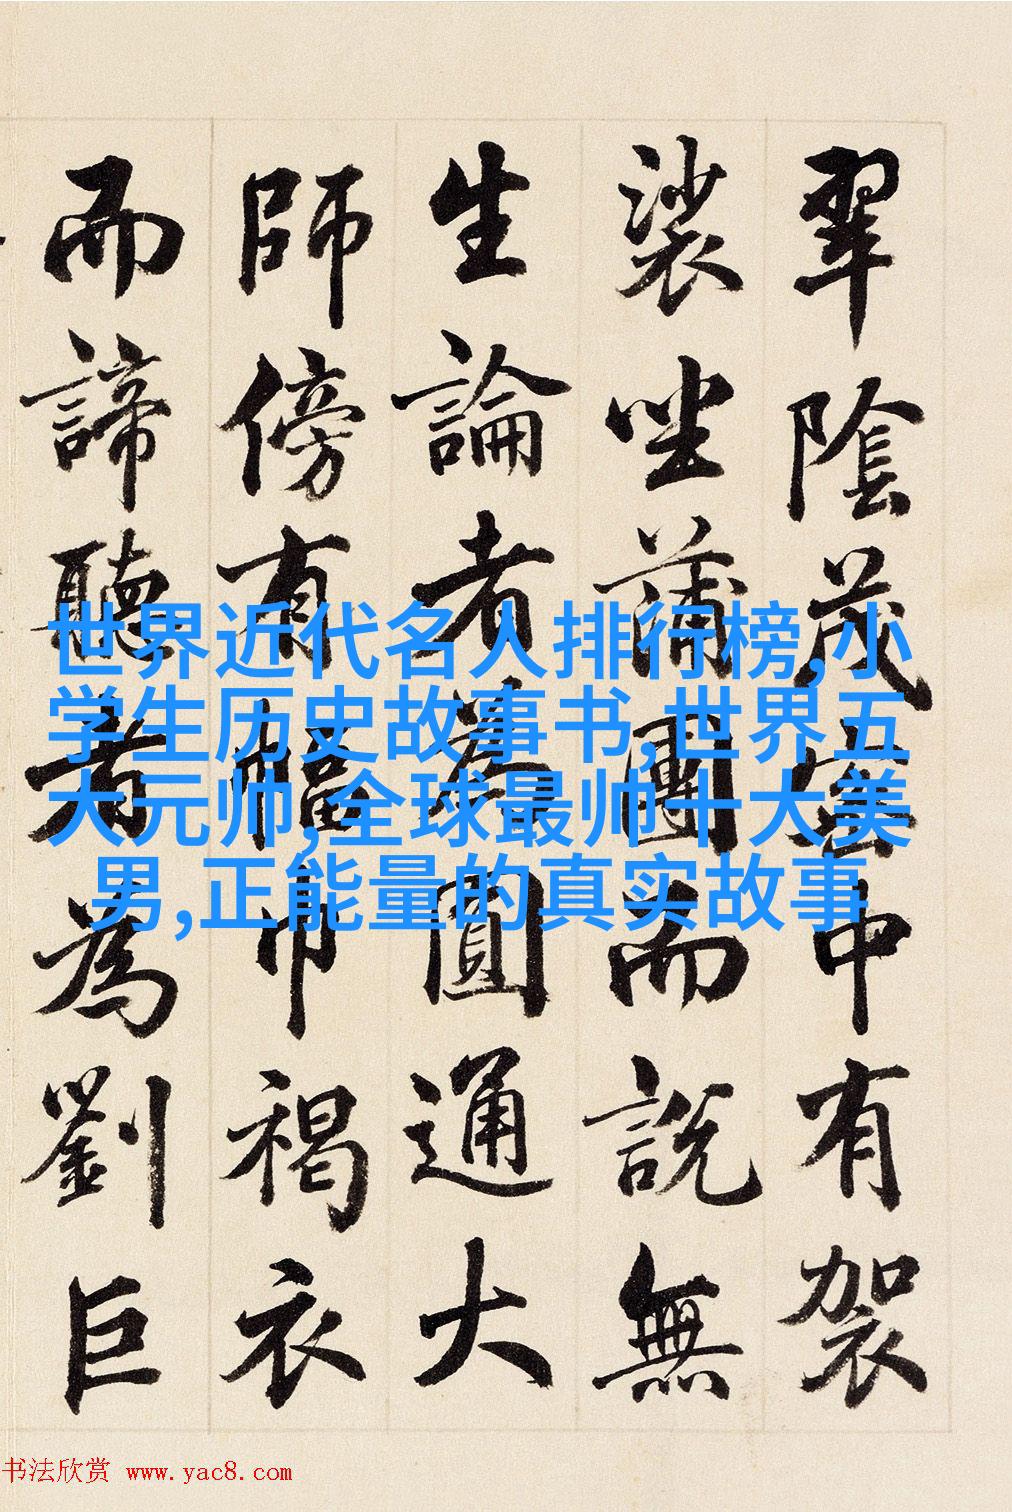 翠陰茂密中有袈
裟坐蒲團而說無
生論者為圓通大
師傍有幅巾褐衣
而諦聽者為劉巨
世界近代名人排行榜,小
学生历史故事书,世界五
大元帅,全球最帅十大美
男,正能量的真实故事
书法欣赏 www.yac8.com